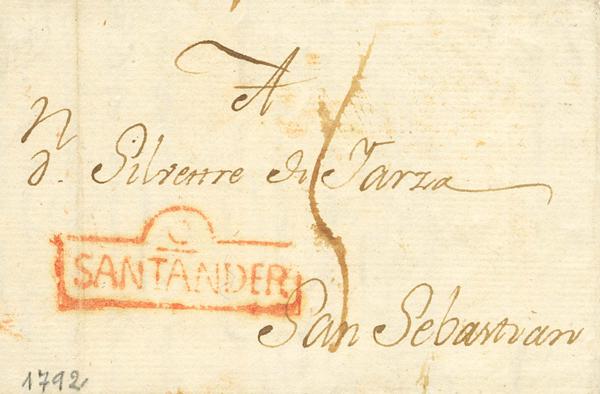 A
n
d. Silvestre de Jarza
C
SANTANDER
San Sebastian
1792